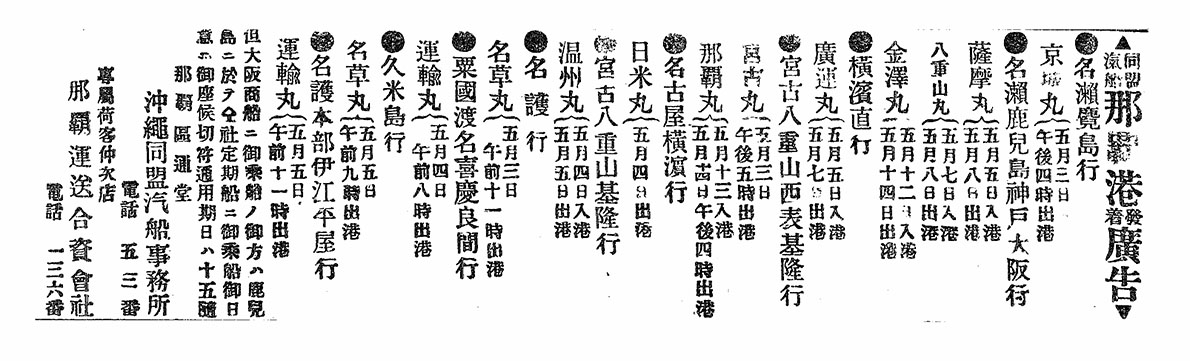 ▲同盟汽船那覇港發着廣告▼
●名瀨覽島行
京城丸 五月三日午後四時出港
●名瀨鹿兒島神戸大阪行
薩摩丸 五月五日入港 五月八日出港
八重山丸 五月七日入港 五月八日出港
金澤丸 五月十二日入港 五月十四日出港
●橫濱直行
廣運丸 五月五日入港 五月七日出港
●宮古八重山西表基隆行
宮古丸 五月三日午後五時出港
那覇丸 五月十三入港 五月十五日午後四時出港
●名古屋橫濱行
日米丸 五月四日出港
●宮古八重山基隆行
温州丸 五月四日入港 五月五日出港
●名護行
名草丸 五月三日午前十一時出港
●粟國渡名喜慶良間行
運輸丸 五月四日午前八時出港
●久米島行
名草丸 五月五日午前九時出港
●名護本部伊江平屋行
運輸丸 五月五日午前十一時出港
但大阪商船ニ御乘船ノ御方ハ鹿兒
島ニ於テ仝社定期船ニ御乘船御日
意ニ御座候切符通用期日ハ十五隨
那覇區通堂
沖繩同盟汽船事務所
電話 五三番
專屬荷客仲次店
那覇運送合資會社
電話 一三六番